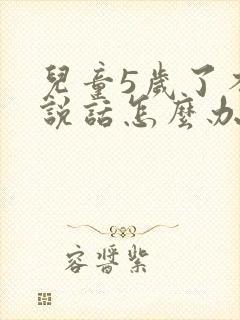 兒童5歲了不
說話怎麼办
容晋紫